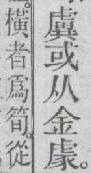 𧇽或从金豦。
橫者爲筍。從